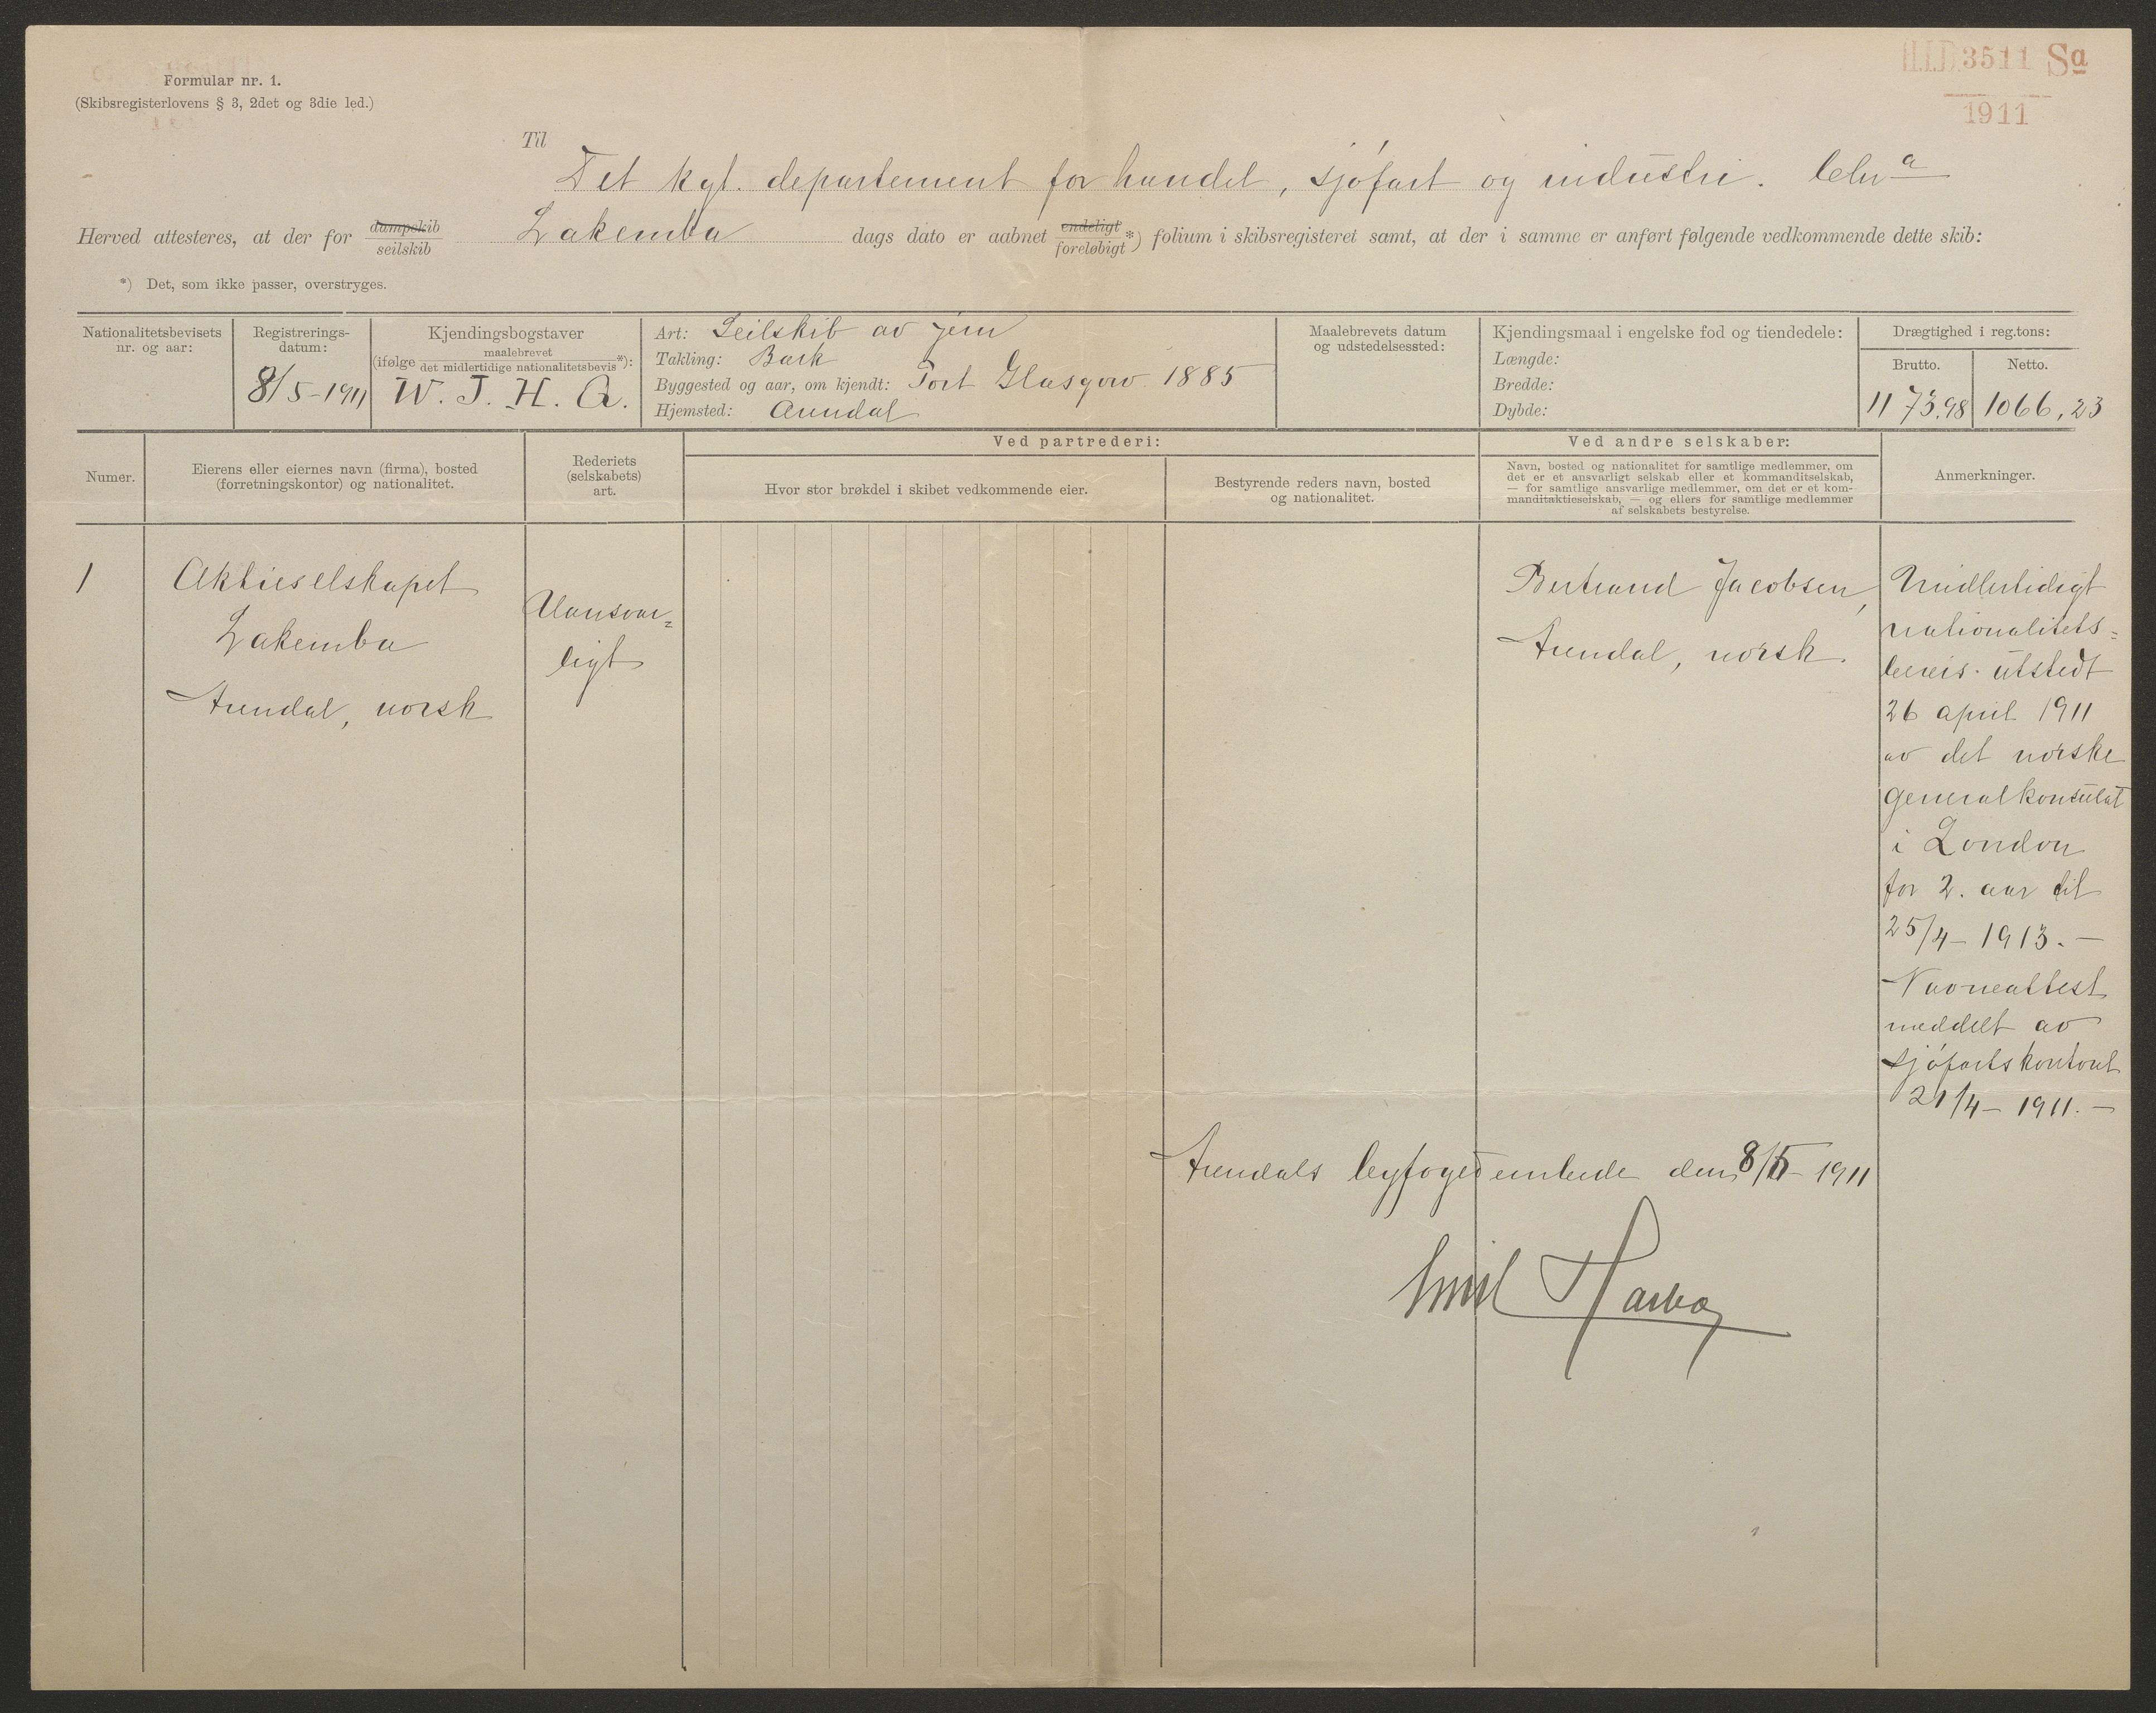 Formular nr. 1.
(Skibsregisterlovens § 3, 2det og 3die led.)
H.I.D. 3511 Sa
1911
Til
Det kgl. departement for handel, sjøfart og industri.
Herved attesteres, at der for dampskib
seilskib
Lakemba dags dato er aabnet endeligt
foreløbigt *) folium i skibsregisteret samt, at der i samme er anført følgende vedkommende dette skib:
*) Det, som ikke passer, overstryges.
Nationalitetsbevisets
nr. og aar:
Registrerings-
datum:
8/5-1911
Kjendingsbogstaver
(ifølge maalebrevet
det midlertidige nationalitetsbevis *):
W. J. H. Q.
Art: Seilskib av jern
Takling: Bark
Byggested og aar, om kjendt: Port Glasgow 1885
Hjemsted: Arendal
Maalebrevets datum
og udstedelsessted:
Kjendingsmaal i engelske fod og tiendedele:
Længde:
Bredde:
Dybde:
Drægtighed i reg.tons:
Brutto. Netto.
1173,98 1066,23
Numer.
Eierens eller eiernes navn (firma), bosted
(forretningskontor) og nationalitet.
Rederiets
(selskabets)
art.
Ved partrederi:
Hvor stor brøkdel i skibet vedkommende eier.
Bestyrende reders navn, bosted
og nationalitet.
Ved andre selskaber:
Navn, bosted og nationalitet for samtlige medlemmer, om
det er et ansvarligt selskab eller et kommanditselskab,
— for samtlige ansvarlige medlemmer, om det er et kom-
manditaktieselskab, — og ellers for samtlige medlemmer
af selskabets bestyrelse.
Anmerkninger.
1
Aktieselskapet
Lakemba
Arendal, norsk
Uansvar=
ligt
Bertrand Jacobsen,
Arendal, norsk.
Midlertidigt
nationalitets=
bevis utstedt
26 april 1911
av det norske
generalkonsulat
i London
for 2. aar til
25/4-1913. —
Navneattest
meddelt av
sjøfartskontoret
21/4-1911. —
Arendals byfogedembede den 8/5-1911
Emil